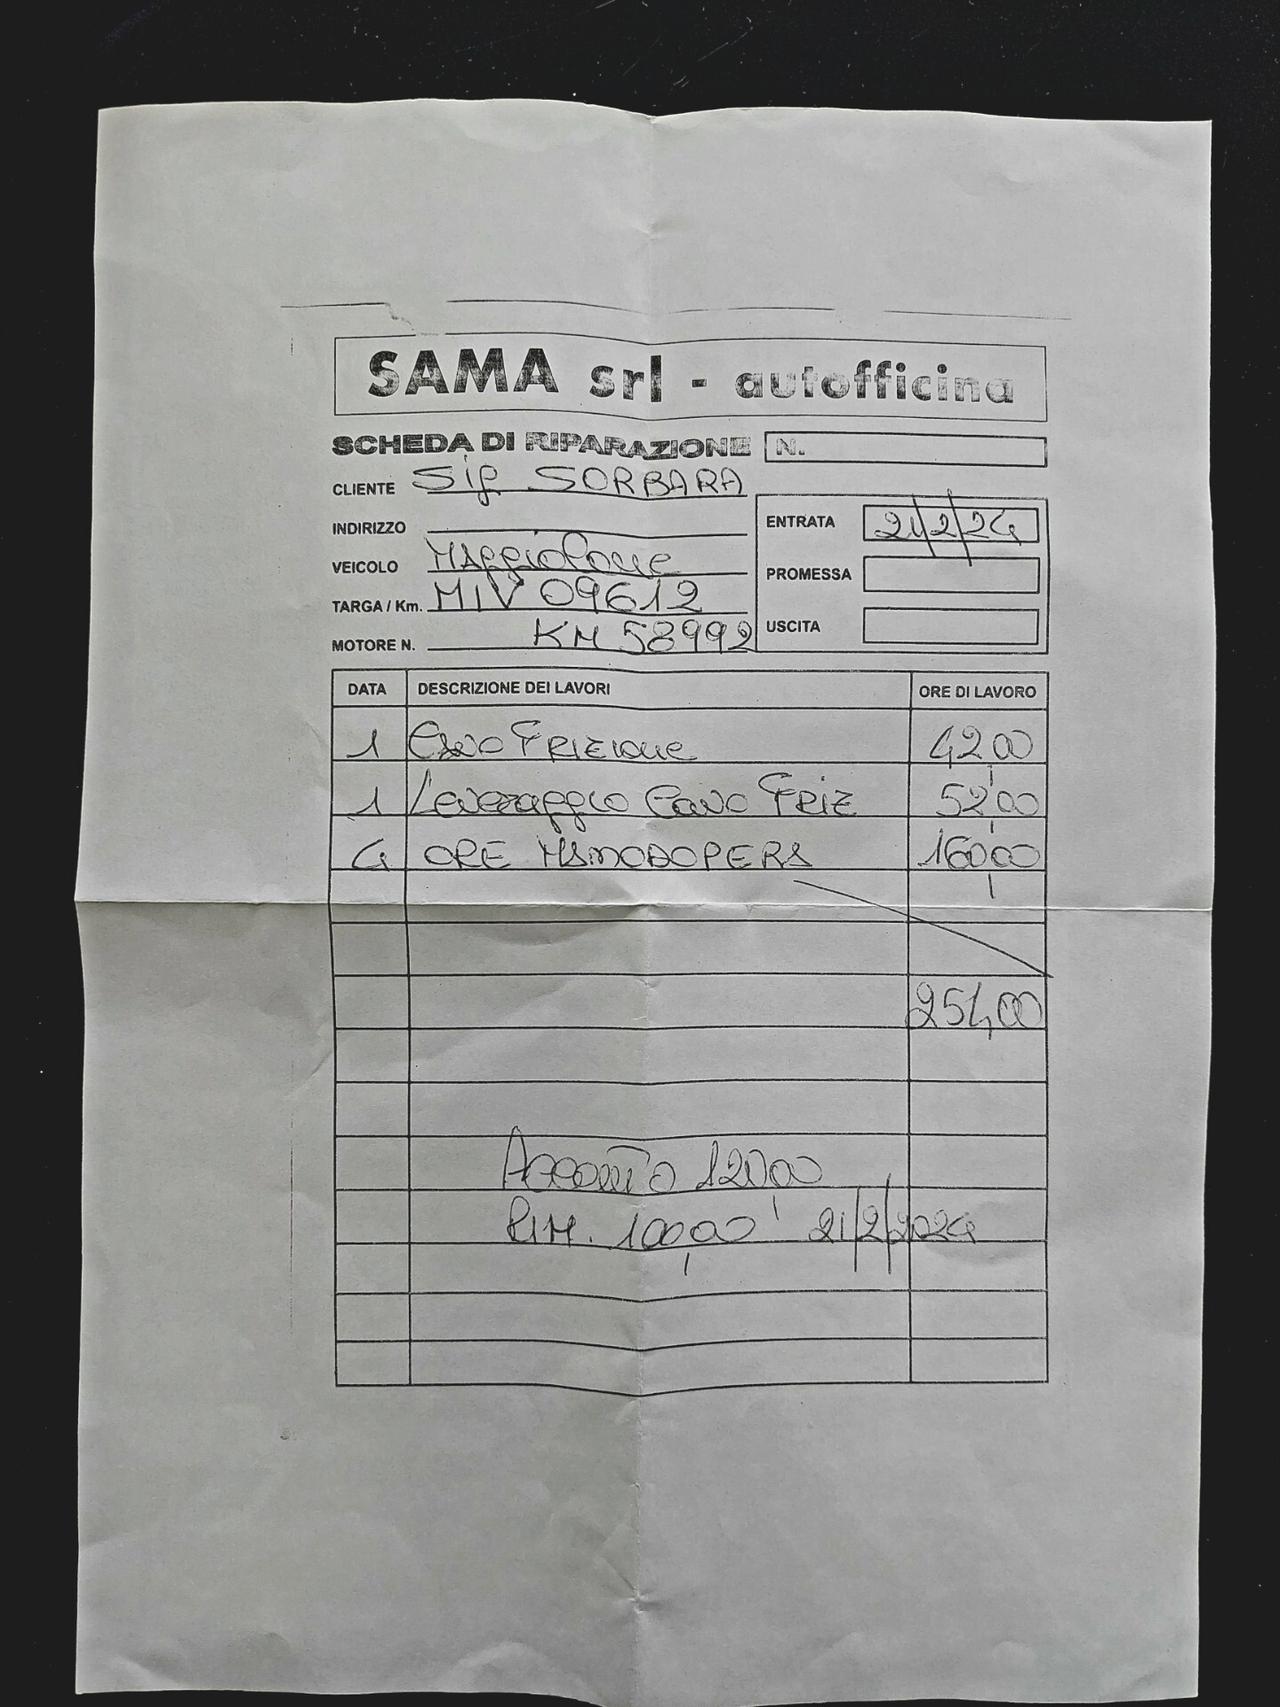 SAMA srl - autofficina
SCHEDA DI RIPARAZIONE N.
CLIENTE Sig SORBARA
INDIRIZZO
VEICOLO Maggiolone
TARGA / Km. MIV 09612
MOTORE N. KM 58992
ENTRATA 21/2/24
PROMESSA
USCITA
DATA DESCRIZIONE DEI LAVORI ORE DI LAVORO
1 Cavo FRIZIONE 42,00
1 Leveraggio Cavo FRIZ 52,00
4 ORE MANODOPERA 160,00
254,00
Acconto 120,00
RIM. 100,00 21/2/2024